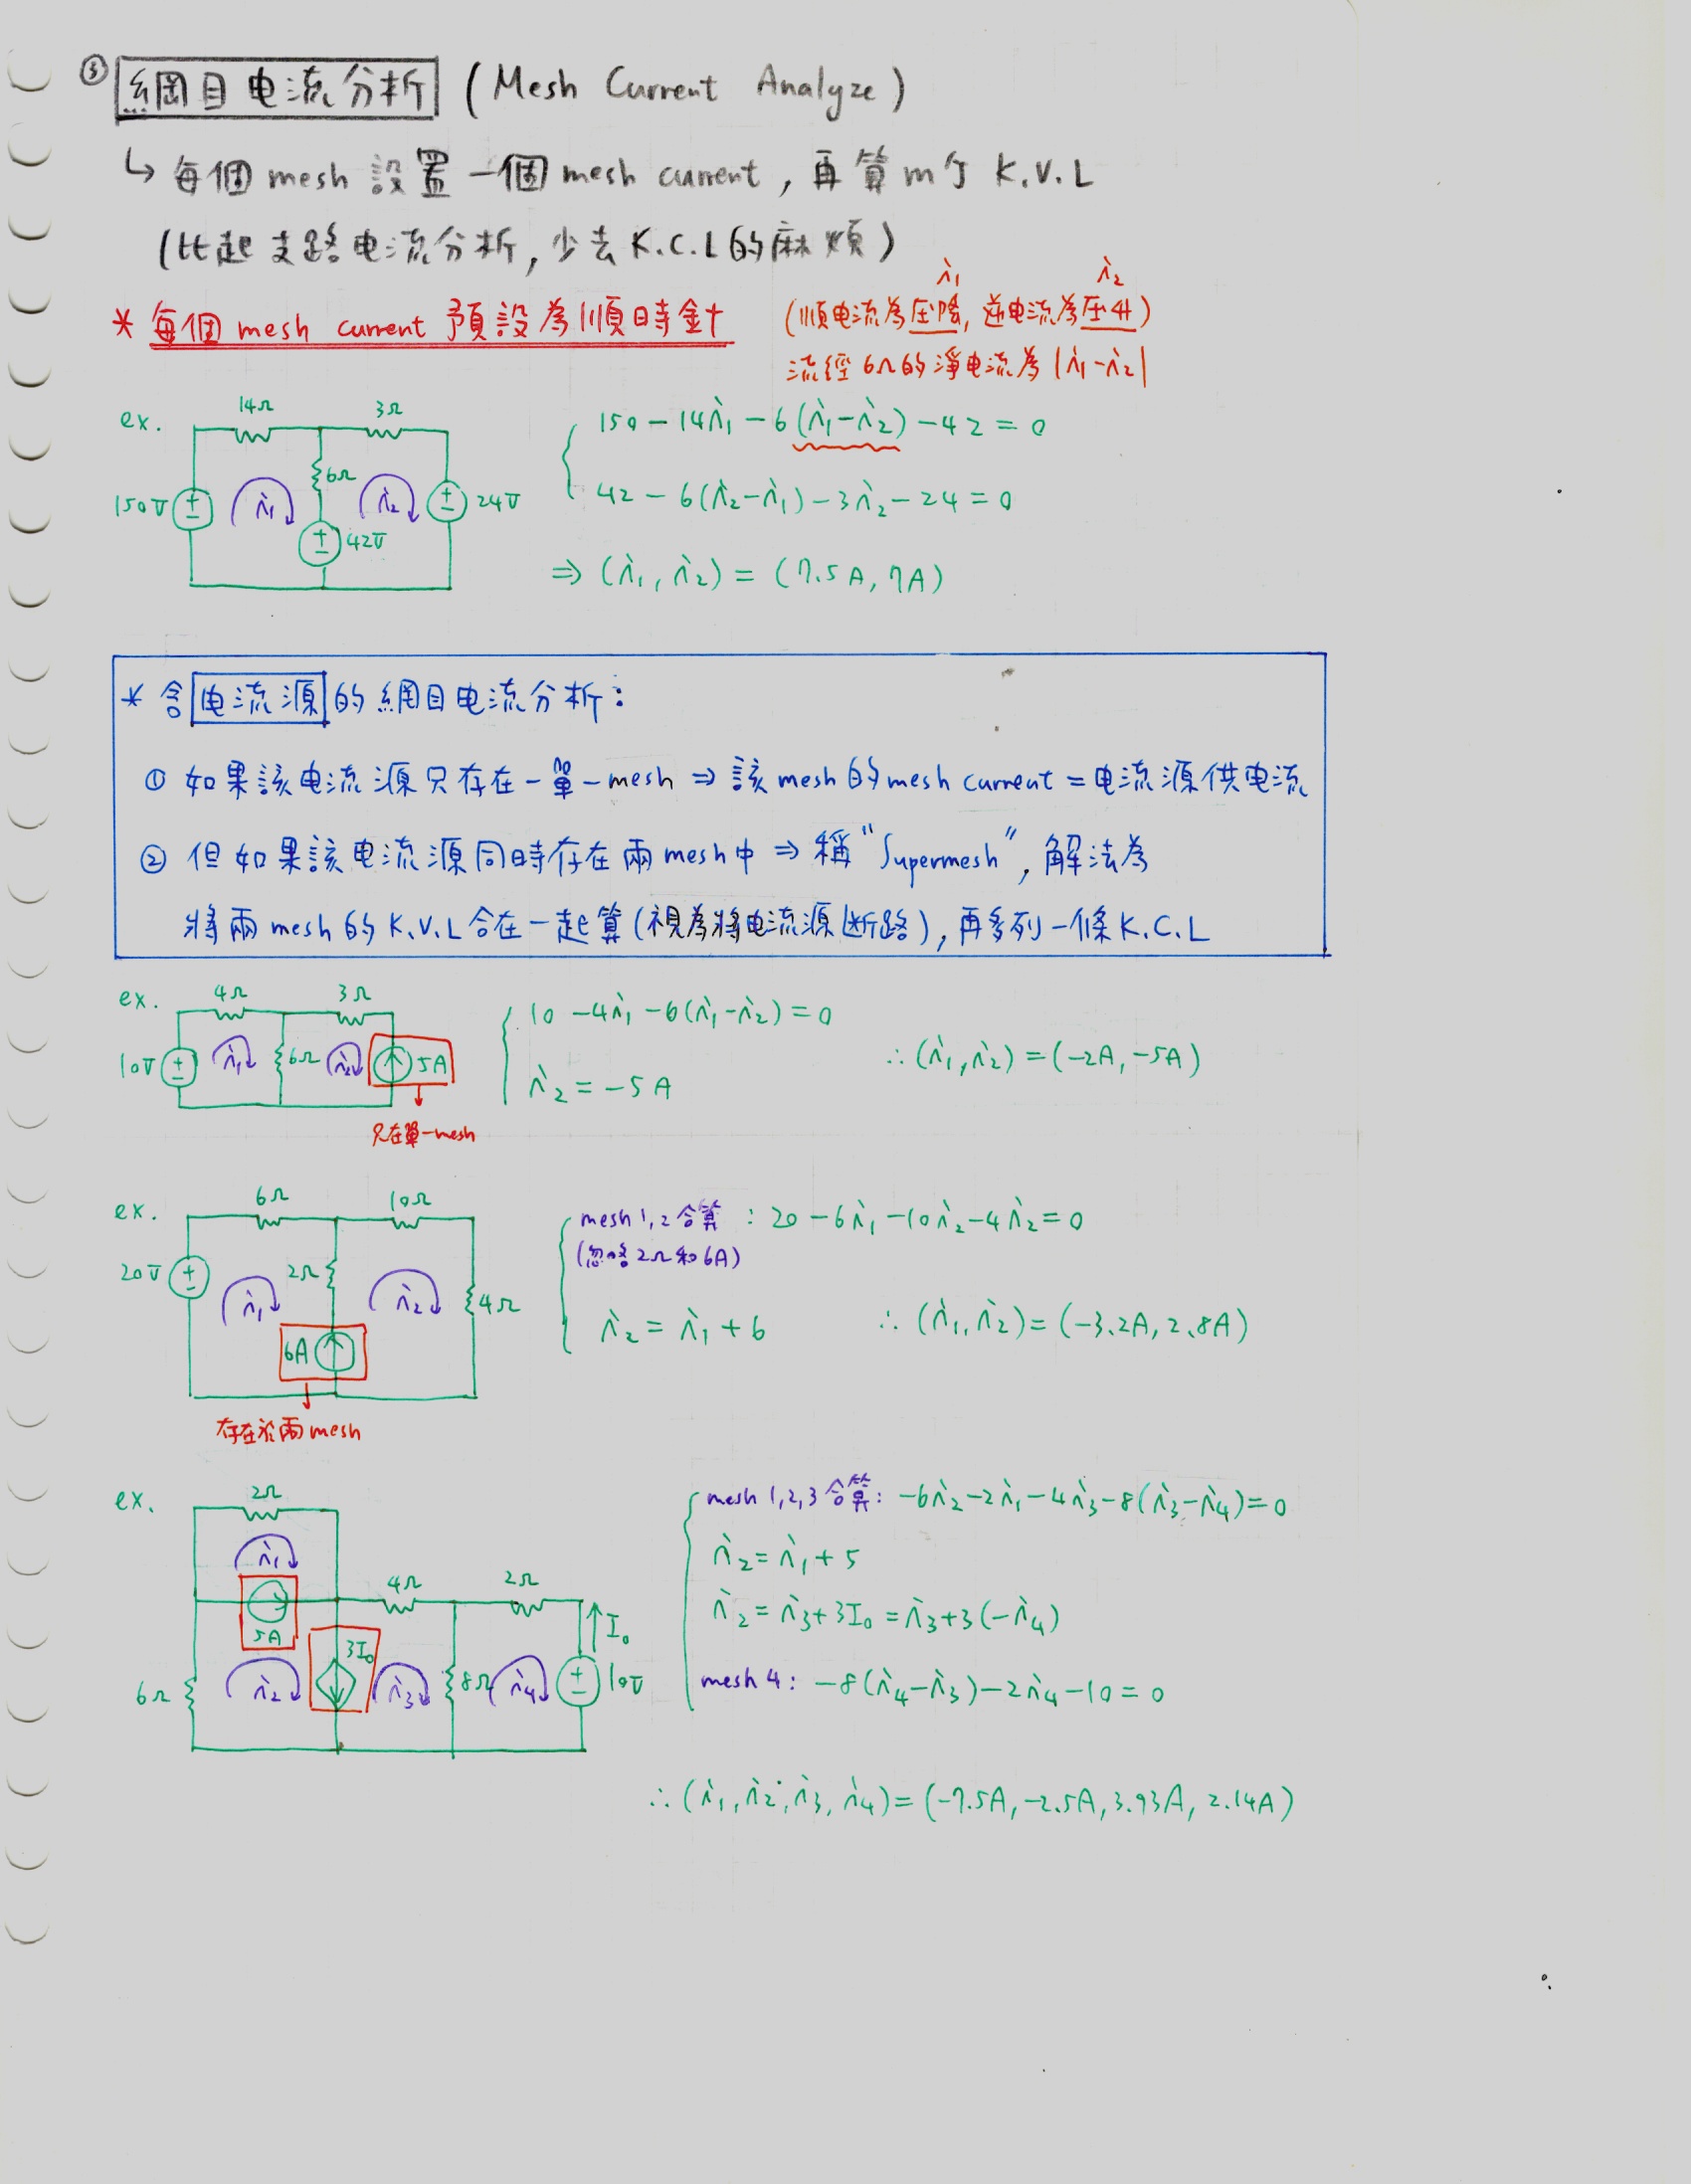 ③ 網目电流分析 (Mesh Current Analyze)
↳ 每個 mesh 設置一個 mesh current, 再算 m个 K.V.L
(比起支路电流分析, 少去 K.C.L 的麻煩)
* 每個 mesh current 預設為順時針
i1 i2
(順电流為压降, 逆电流為压升)
流經 6Ω 的淨电流為 |i1-i2|
ex.
14Ω 3Ω
6Ω
150V i1 i2 24V
42V
150 - 14i1 - 6(i1-i2) - 42 = 0
42 - 6(i2-i1) - 3i2 - 24 = 0
⇒ (i1, i2) = (7.5A, 7A)
* 含电流源的網目电流分析:
① 如果該电流源只存在一單一mesh ⇒ 該 mesh 的 mesh current = 电流源供电流
② 但如果該电流源同時存在兩 mesh 中 ⇒ 稱 "Supermesh", 解法為
將兩 mesh 的 K.V.L 合在一起算 (視為將电流源断路), 再多列一條 K.C.L
ex.
4Ω 3Ω
10V i1 6Ω i2 5A
只在單一mesh
10 - 4i1 - 6(i1-i2) = 0
i2 = -5A
∴ (i1, i2) = (-2A, -5A)
ex.
6Ω 10Ω
20V 2Ω
i1 i2 4Ω
6A
存在於兩 mesh
mesh 1,2 合算 : 20 - 6i1 - 10i2 - 4i2 = 0
(忽略 2Ω 和 6A)
i2 = i1 + 6
∴ (i1, i2) = (-3.2A, 2.8A)
ex.
2Ω
i1
4Ω 2Ω
5A I0
3I0
6Ω i2 i3 8Ω i4 10V
mesh 1,2,3 合算: -6i2-2i1-4i3-8(i3-i4)=0
i2 = i1 + 5
i2 = i3+3I0 = i3+3(-i4)
mesh 4: -8(i4-i3)-2i4-10 = 0
∴ (i1, i2, i3, i4) = (-7.5A, -2.5A, 3.93A, 2.14A)